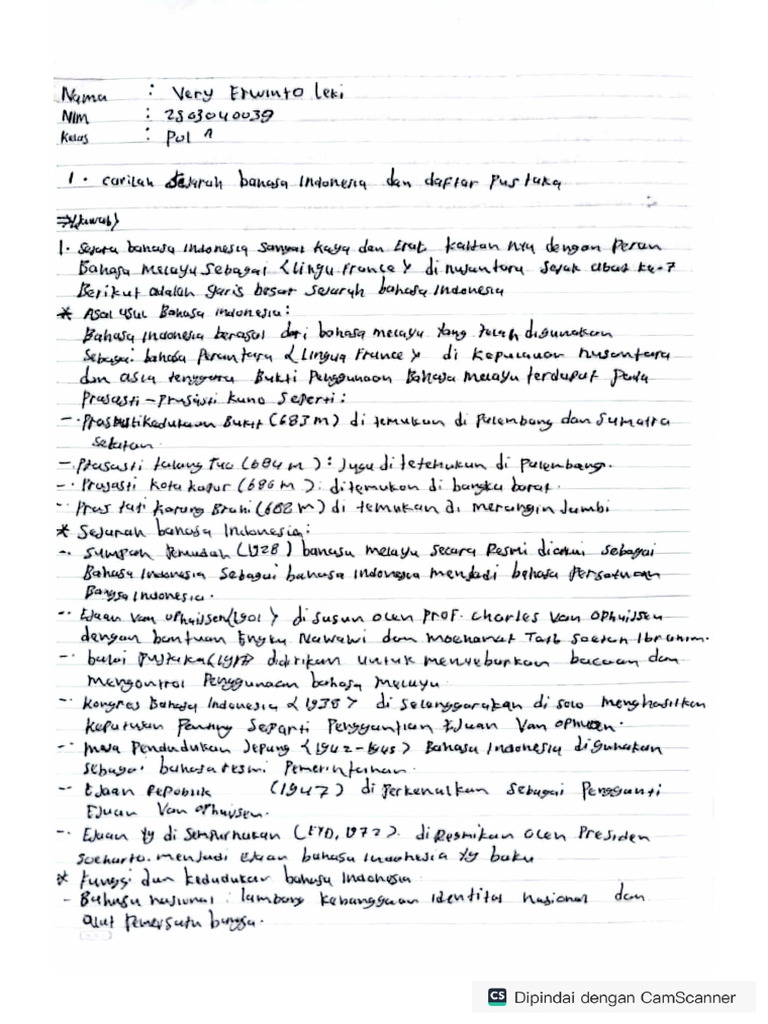 Nama : Very Erwinto Leki
NIM : 2503040039
Kelas : Pol A
1. carilah sejarah bahasa Indonesia dan daftar Pustaka
=> (Jawab)
1. Sejara bahasa Indonesia sangat kaya dan Erat kaitan nya dengan Peran
Bahasa Melayu sebagai <Lingu France> di nusantara sejak abat ke-7
Berikut adalah garis besar sejarah bahasa Indonesia
* Asal usul Bahasa Indonesia:
Bahasa Indonesia berasal dari bahasa melayu yang telah digunakan
sebagai bahasa Perantara <Lingua France> di kepulauan nusantara
dan asia tenggara Bukti Penggunaan Bahasa Melayu terdapat pada
Prasasti-Prasasti kuno seperti:
- Kedukan Bukit (683 m) di temukan di Palembang dan Sumatra
selatan.
- Prasasti talang Tuo (684 m): Juga di di Palembang.
- Prasasti Kota kapur (686 m): ditemukan di bangka barat.
- Pras tati Karang Brahi (682 m) di temukan di merangin Jambi
* Sejarah bahasa Indonesia:
- Sumpah Pemudah (1928) bahasa melayu secara Resmi diakui sebagai
Bahasa Indonesia sebagai bahasa Indonesia menjadi bahasa Persatuan
Bangsa Indonesia.
- Ejaan Van Ophuijsen (1901) di susun oleh Prof. Charles Van Ophuijsen
dengan bantuan Engku Nawawi dan Mochamat Taib Soetan Ibrahim.
- balai Pustaka didirikan untuk menyebarkan bacaan dan
mengontrol Penggunaan bahasa Melayu
- Kongres Bahasa Indonesia <1938> di selenggarakan di solo menghasilkan
keputusan Penting Seperti Penggantian Ejaan Van Ophuisen.
- masa Pendudukan Jepang <1942-1945> Bahasa Indonesia digunakan
sebagai bahasa resmi Pemerintahan.
- Ejaan Republik (1947) di Perkenalkan sebagai Pengganti
Ejaan Van Ophuysen.
- Ejaan Yg di Sempurnakan (EYD, 1972). di Resmikan oleh Presiden
Soeharto. menjadi Ejaan bahasa Indonesia Yg baku
* Fungsi dan kedudukan bahasa Indonesia
- Bahasa nasional: lambang kebanggaan identitas nasional dan
alat Pemersatu bangsa.
CS Dipindai dengan CamScanner